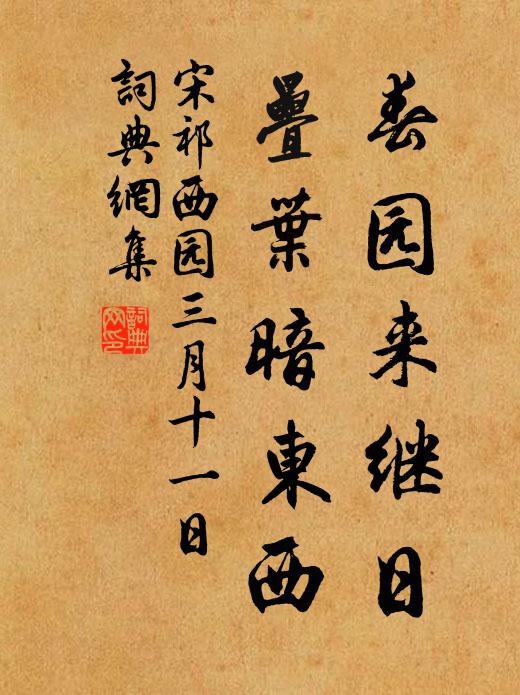 春园来继日
疊葉暗東西
宋祁西园三月十一日
詞典網集
詞典網印